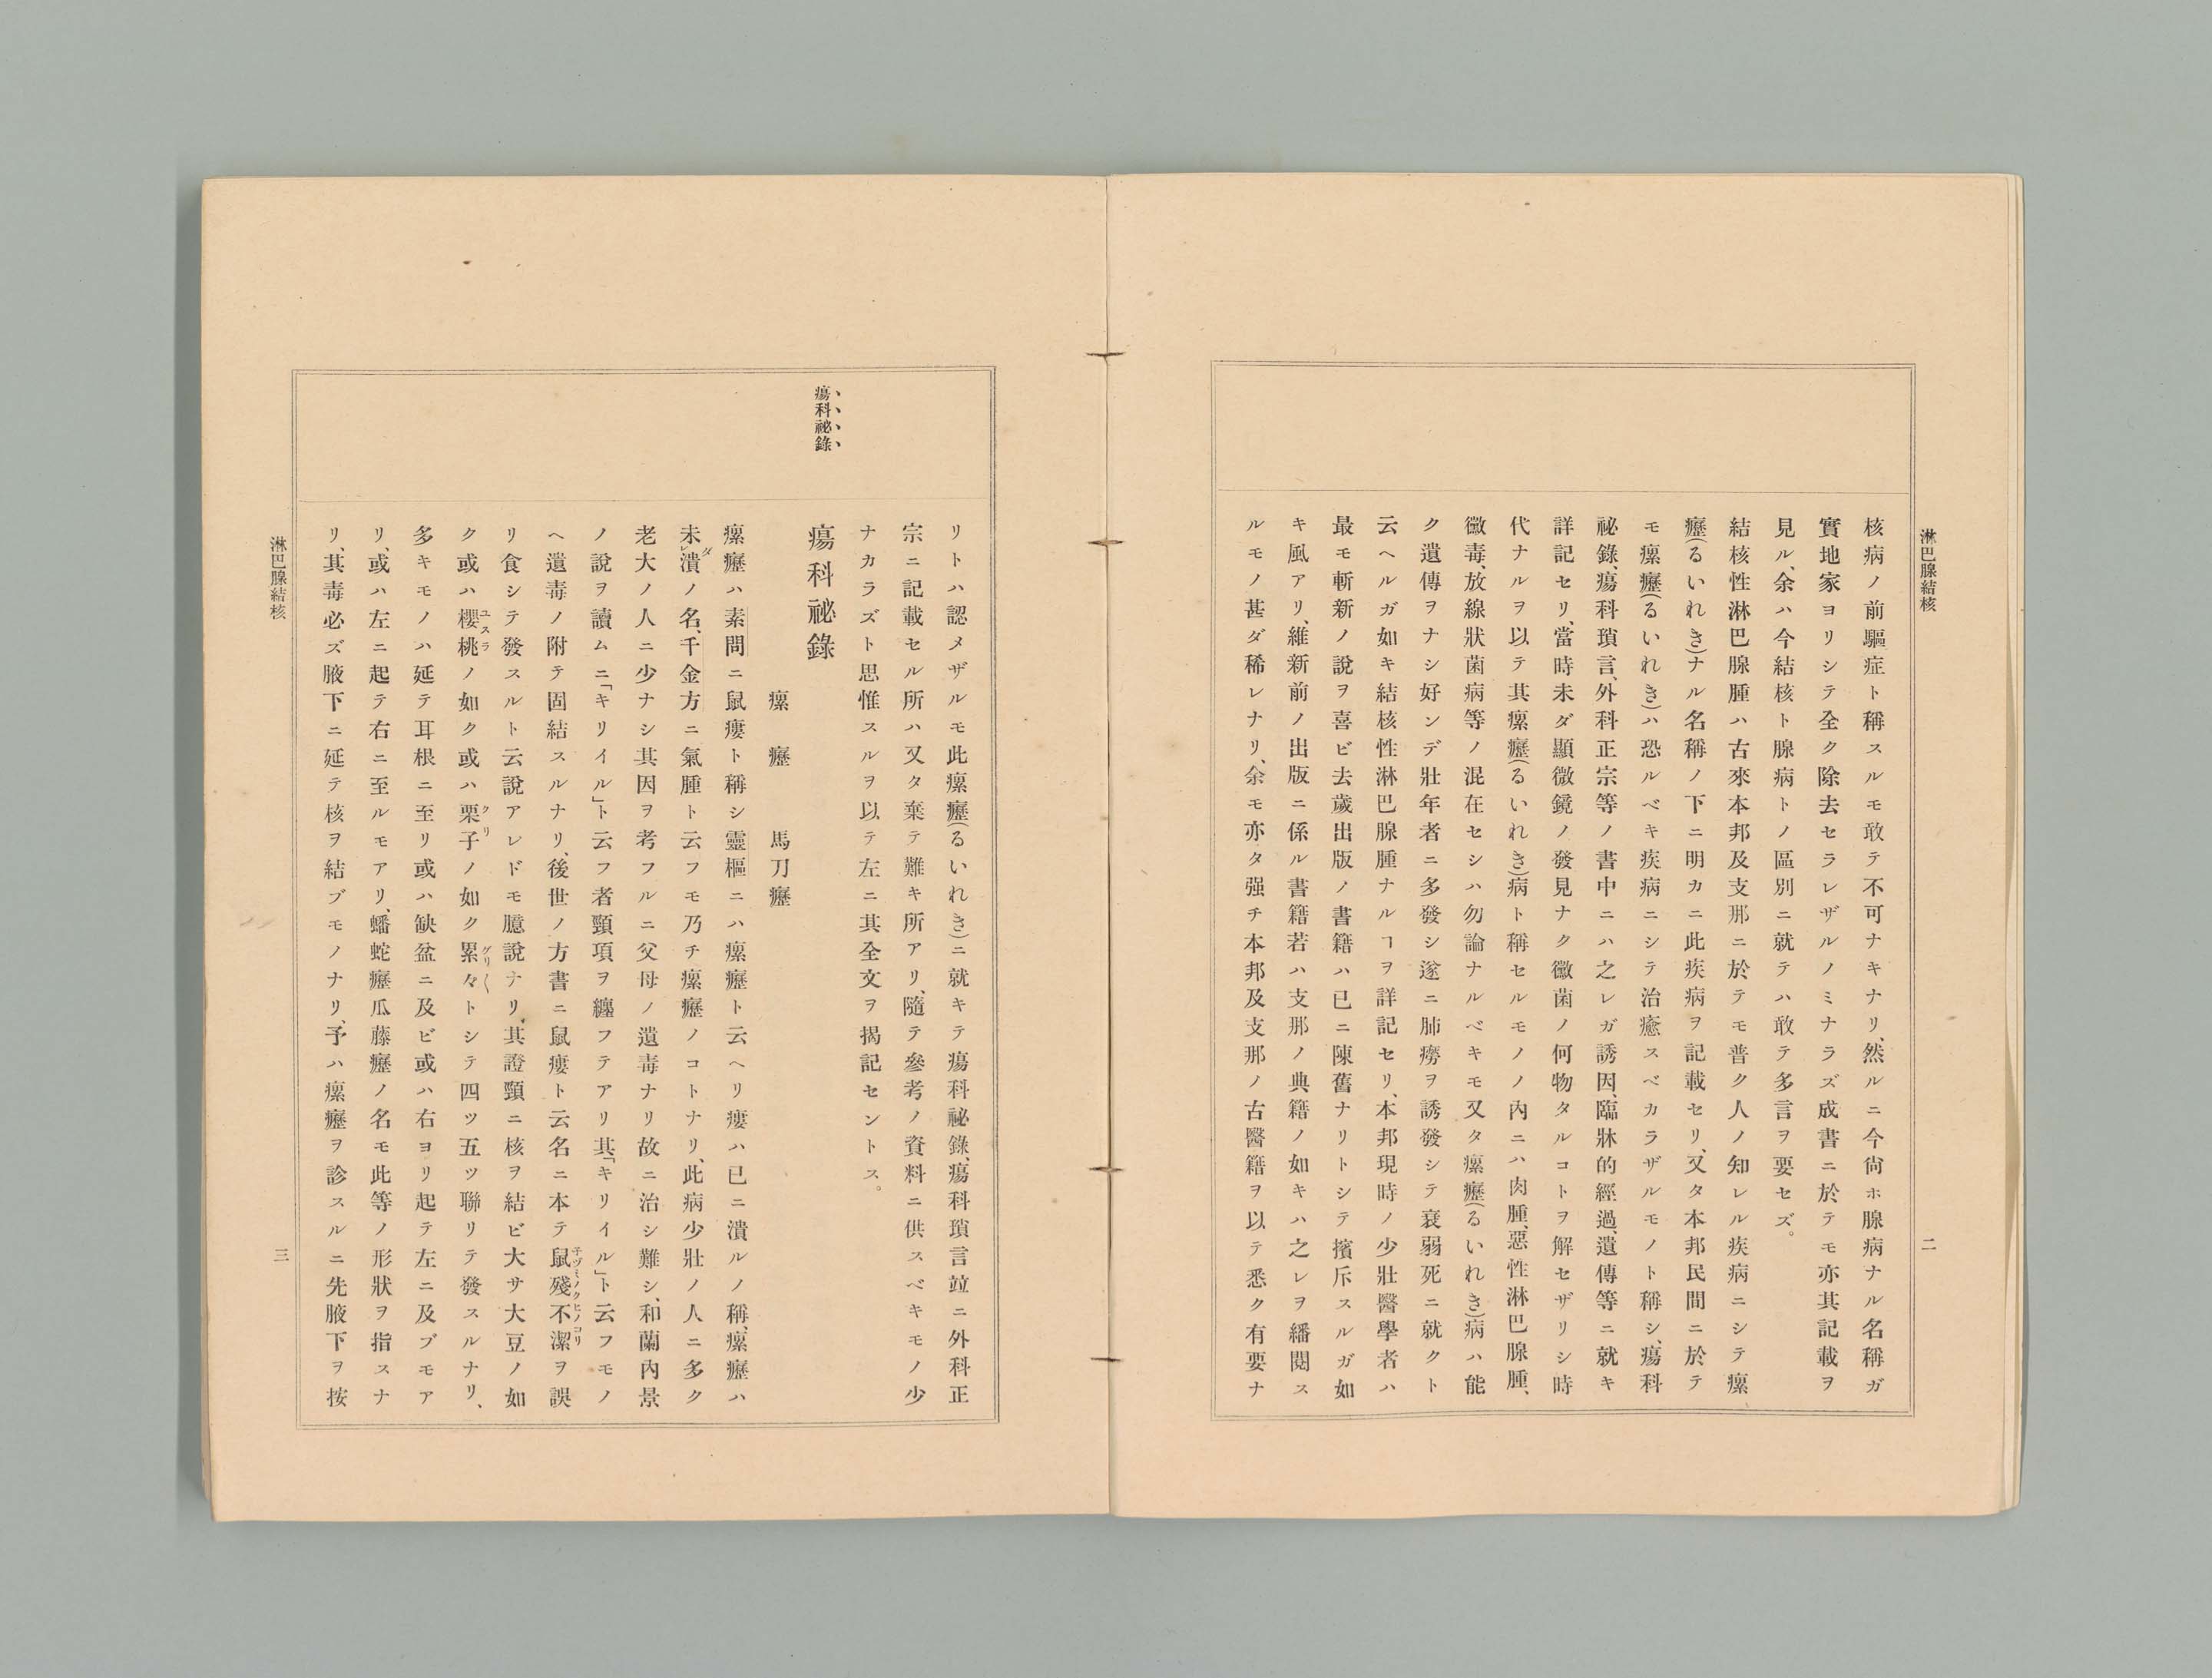 淋巴腺結核
二
核病ノ前驅症ト稱スルモ敢テ不可ナキナリ、然ルニ今尙ホ腺病ナル名稱ガ
實地家ヨリシテ全ク除去セラレザルノミナラズ成書ニ於テモ亦其記載ヲ
見ル、余ハ今結核ト腺病トノ區別ニ就テハ敢テ多言ヲ要セズ。
結核性淋巴腺腫ハ古來本邦及支那ニ於テモ普ク人ノ知レル疾病ニシテ瘰
癧(るいれき)ナル名稱ノ下ニ明カニ此疾病ヲ記載セリ、又タ本邦民間ニ於テ
モ瘰癧(るいれき)ハ恐ルベキ疾病ニシテ治癒スベカラザルモノト稱シ、瘍科
祕錄、瘍科瑣言、外科正宗等ノ書中ニハ之レガ誘因、臨牀的經過、遺傳等ニ就キ
詳記セリ、當時未ダ顯微鏡ノ發見ナク黴菌ノ何物タルコトヲ解セザリシ時
代ナルヲ以テ其瘰癧(るいれき)病ト稱セルモノノ內ニハ肉腫、惡性淋巴腺腫、
黴毒、放線狀菌病等ノ混在セシハ勿論ナルベキモ又タ瘰癧(るいれき)病ハ能
ク遺傳ヲナシ好ンデ壯年者ニ多發シ遂ニ肺癆ヲ誘發シテ衰弱死ニ就クト
云ヘルガ如キ結核性淋巴腺腫ナルヿヲ詳記セリ、本邦現時ノ少壯醫學者ハ
最モ斬新ノ說ヲ喜ビ去歲出版ノ書籍ハ已ニ陳舊ナリトシテ擯斥スルガ如
キ風アリ、維新前ノ出版ニ係ル書籍若ハ支那ノ典籍ノ如キハ之レヲ繙閱ス
ルモノ甚ダ稀レナリ、余モ亦タ强チ本邦及支那ノ古醫籍ヲ以テ悉ク有要ナ
リトハ認メザルモ此瘰癧(るいれき)ニ就キテ瘍科祕錄、瘍科瑣言竝ニ外科正
宗ニ記載セル所ハ又タ棄テ難キ所アリ、隨テ參考ノ資料ニ供スベキモノ少
ナカラズト思惟スルヲ以テ左ニ其全文ヲ揭記セントス。
瘍科祕錄
瘍科祕錄
瘰癧 馬刀癧
瘰癧ハ素問ニ鼠瘻ト稱シ靈樞ニハ瘰癧ト云ヘリ瘻ハ已ニ潰ルノ稱、瘰癧ハ
未ダ潰レノ名、千金方ニ氣腫ト云フモ乃チ瘰癧ノコトナリ、此病少壯ノ人ニ多ク
老大ノ人ニ少ナシ其因ヲ考フルニ父母ノ遺毒ナリ故ニ治シ難シ、和蘭內景
ノ說ヲ讀ムニ「キリイル」ト云フ者頸項ヲ纏フテアリ其「キリイル」ト云フモノ
ヘ遺毒ノ附テ固結スルナリ、後世ノ方書ニ鼠瘻ト云名ニ本テ鼠殘不潔ヲ誤
リ食シテ發スルト云說アレドモ臆說ナリ、其證頸ニ核ヲ結ビ大サ大豆ノ如
ク或ハ櫻桃ユスラノ如ク或ハ栗子クリノ如ク累々グリ〱トシテ四ツ五ツ聯リテ發スルナリ、
多キモノハ延テ耳根ニ至リ或ハ缺盆ニ及ビ或ハ右ヨリ起テ左ニ及ブモア
リ、或ハ左ニ起テ右ニ至ルモアリ、蟠蛇癧瓜藤癧ノ名モ此等ノ形狀ヲ指スナ
リ、其毒必ズ腋下ニ延テ核ヲ結ブモノナリ、予ハ瘰癧ヲ診スルニ先腋下ヲ按
淋巴腺結核
三